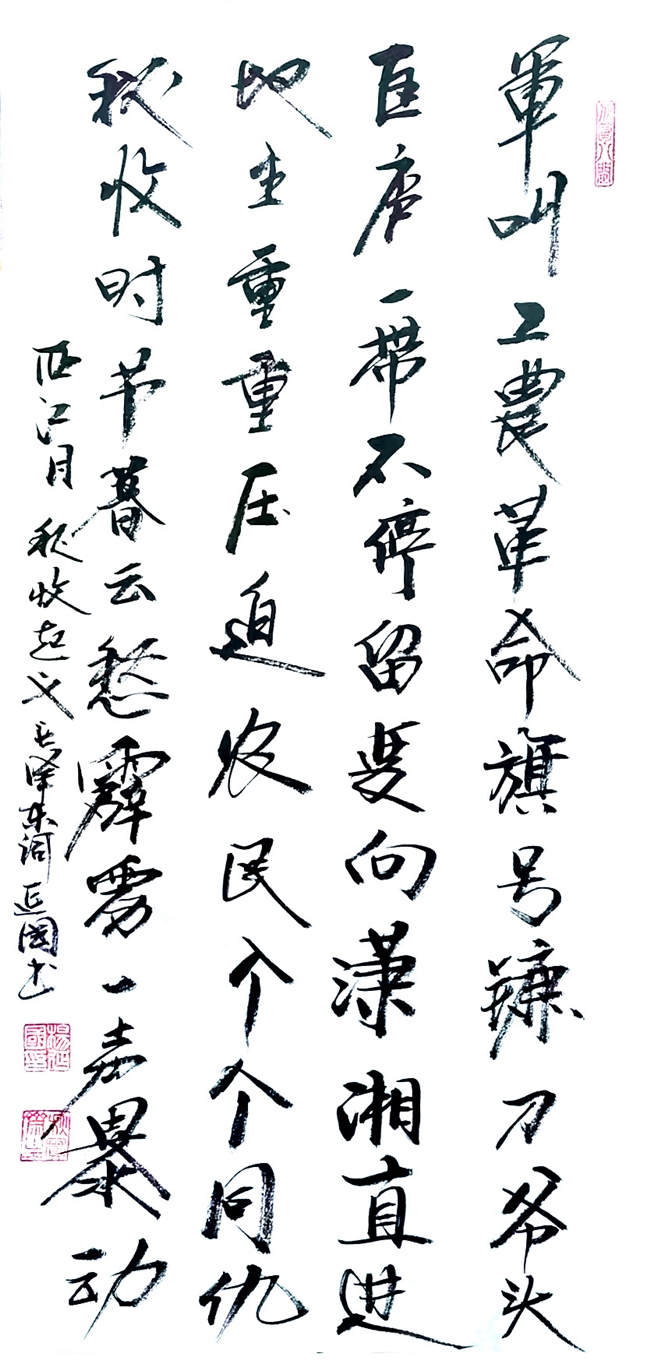 軍叫工農革命旗号鐮刀斧头
匡庐一带不停留要向潇湘直进
地主重重压迫农民个个同仇
秋收时节暮云愁霹雳一声暴动
西江月 秋收起义 毛泽东词 延國书